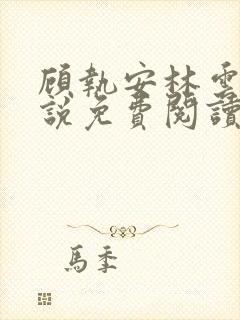 顾執安林雲
說免費閱讀
馬季